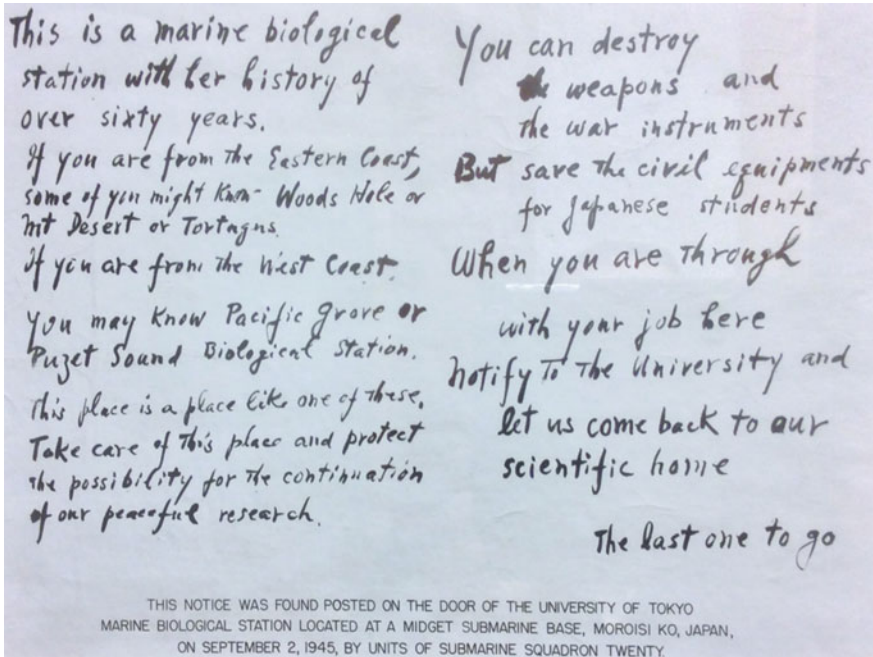 This is a marine biological
station with her history of
over sixty years.
If you are from the Eastern Coast,
some of you might know Woods Hole or
Mt Desert or Tortugas.
If you are from the West Coast.
you may know Pacific Grove or
Puzet Sound Biological Station.
This place is a place like one of these.
Take care of this place and protect
the possibility for the continuation
of our peaceful research.
You can destroy
the weapons and
the war instruments
But save the civil equipments
for Japanese students
When you are through
with your job here
Notify to the University and
let us come back to our
scientific home
The last one to go
THIS NOTICE WAS FOUND POSTED ON THE DOOR OF THE UNIVERSITY OF TOKYO
MARINE BIOLOGICAL STATION LOCATED AT A MIDGET SUBMARINE BASE, MOROISI KO, JAPAN,
ON SEPTEMBER 2, 1945, BY UNITS OF SUBMARINE SQUADRON TWENTY.